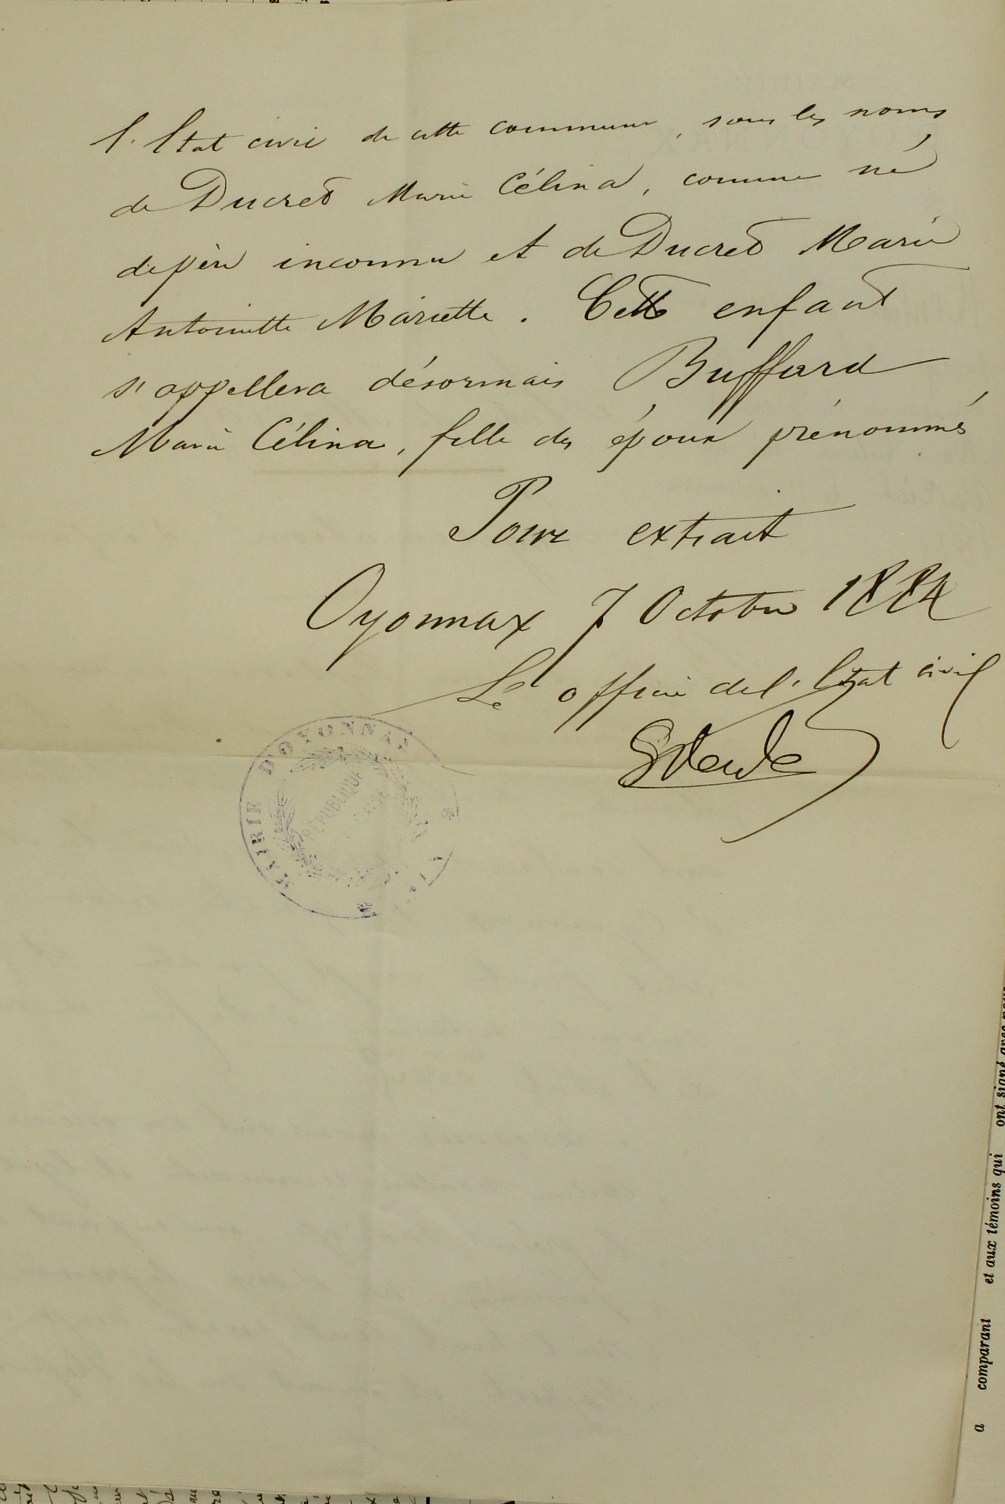 l'Etat civil de cette commune, sous les noms
de Ducret Marie Célina, comme né
de père inconnu et de Ducret Marie
Antoinette Mariette. Cette enfant
s'appellera désormais Buffard
Marie Célina, fille des époux prénommés
Pour extrait
Oyonnax 7 Octobre 1884
Le officier de l'Etat civil
MAIRIE D'OYONNAX
RÉPUBLIQUE
a comparant et aux témoins qui ont signé avec nous